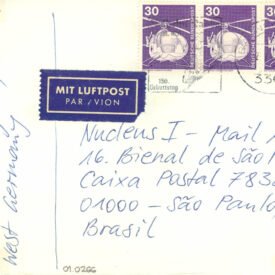 30
30
30
DEUTSCHE BUNDESPOST
150.
Geburtstag
MIT LUFTPOST
PAR / VION
Nucleus I - Mail 1
16. Bienal de São
Caixa Postal 783
01000 - São Paulo
Brasil
West Germany
01.0266